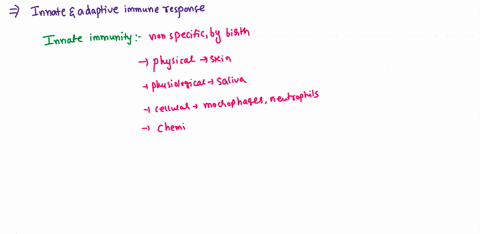 ⇒ Innate & adaptive immune response
Innate immunity:- non specific, by birth
→ physical → skin
→ physiological → saliva
→ cellular → macrophages, neutrophils
→ chemi